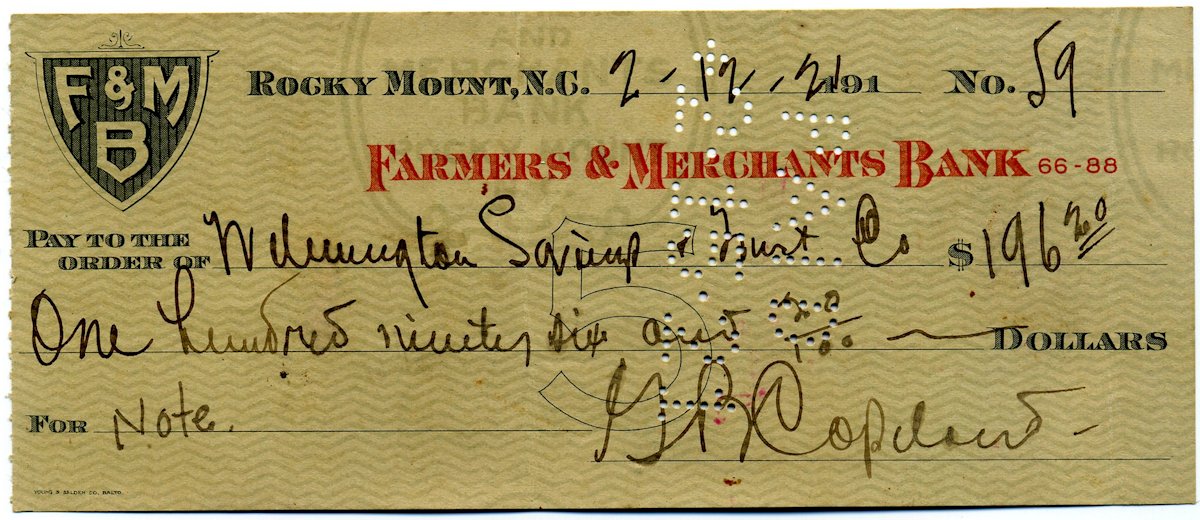 F&M
B
ROCKY MOUNT, N.C. 2-12-21 191 No. 59
FARMERS & MERCHANTS BANK 66-88
PAY TO THE ORDER OF Wilmington Savings & Trust Co $196 20
One hundred ninety six and 20/100 DOLLARS
FOR Note.
G B Copeland
YOUNG & SELDEN CO. BALTO.